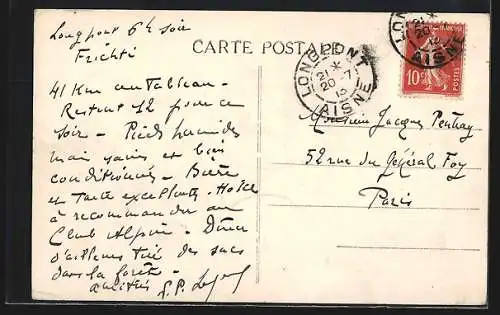 Longpont 6h soir
Frichti
CARTE POSTALE
41 Km au Tableau -
Restent 12 pour ce
soir - Pieds humides
mais sains et bien
conditionnés - Bière
et Tarte excellente. Hôtel
à recommander au
Club Alpin - Dîner
d'ailleurs tiré des sacs
dans la forêt -
amitiés
LONGPONT
21 *
20 -7
12
AISNE
LONGPONT
21
20
12
AISNE
10c
POSTES
Monsieur Jacques
52 rue du Général Foy
Paris